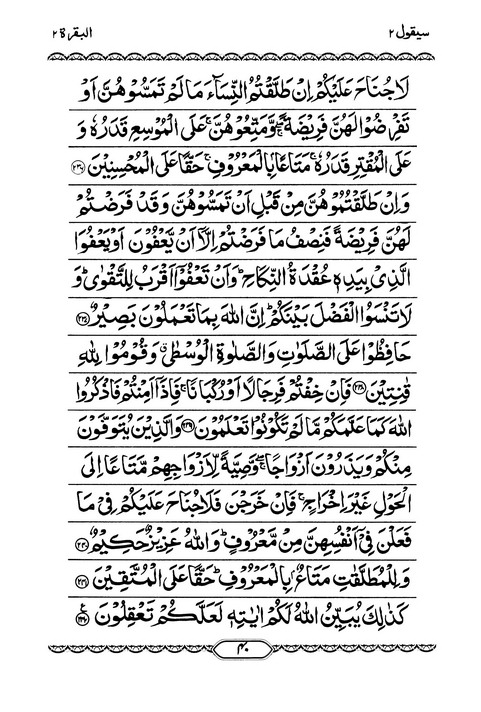 سيقول ٢
البقرة ٢
لَا جُنَاحَ عَلَيْكُمْ اِنْ طَلَّقْتُمُ النِّسَآءَ مَا لَمْ تَمَسُّوْهُنَّ اَوْ
تَفْرِضُوْا لَهُنَّ فَرِيْضَةً ۖۚ وَّمَتِّعُوْهُنَّ ۚ عَلَى الْمُوْسِعِ قَدَرُهٗ وَ
عَلَى الْمُقْتِرِ قَدَرُهٗ ۚ مَتَاعًۢا بِالْمَعْرُوْفِ ۚ حَقًّا عَلَى الْمُحْسِنِيْنَ ﴿٢٣٦﴾
وَاِنْ طَلَّقْتُمُوْهُنَّ مِنْ قَبْلِ اَنْ تَمَسُّوْهُنَّ وَقَدْ فَرَضْتُمْ
لَهُنَّ فَرِيْضَةً فَنِصْفُ مَا فَرَضْتُمْ اِلَّاۤ اَنْ يَّعْفُوْنَ اَوْ يَعْفُوَا
الَّذِىْ بِيَدِهٖ عُقْدَةُ النِّكَاحِ ؕ وَاَنْ تَعْفُوْۤا اَقْرَبُ لِلتَّقْوٰى ؕ وَ
لَا تَنْسَوُا الْفَضْلَ بَيْنَكُمْ ؕ اِنَّ اللّٰهَ بِمَا تَعْمَلُوْنَ بَصِيْرٌ ﴿٢٣٧﴾
حَافِظُوْا عَلَى الصَّلَوٰتِ وَالصَّلٰوةِ الْوُسْطٰى ۗ وَقُوْمُوْا لِلّٰهِ
قٰنِتِيْنَ ﴿٢٣٨﴾ فَاِنْ خِفْتُمْ فَرِجَالًا اَوْ رُكْبَانًا ۚ فَاِذَاۤ اَمِنْتُمْ فَاذْكُرُوا
اللّٰهَ كَمَا عَلَّمَكُمْ مَّا لَمْ تَكُوْنُوْا تَعْلَمُوْنَ ﴿٢٣٩﴾ وَالَّذِيْنَ يُتَوَفَّوْنَ
مِنْكُمْ وَيَذَرُوْنَ اَزْوَاجًا ۖۚ وَّصِيَّةً لِّاَزْوَاجِهِمْ مَّتَاعًا اِلَى
الْحَوْلِ غَيْرَ اِخْرَاجٍ ۚ فَاِنْ خَرَجْنَ فَلَا جُنَاحَ عَلَيْكُمْ فِىْ مَا
فَعَلْنَ فِىْۤ اَنْفُسِهِنَّ مِنْ مَّعْرُوْفٍ ؕ وَاللّٰهُ عَزِيْزٌ حَكِيْمٌ ﴿٢٤٠﴾
وَلِلْمُطَلَّقٰتِ مَتَاعٌۢ بِالْمَعْرُوْفِ ؕ حَقًّا عَلَى الْمُتَّقِيْنَ ﴿٢٤١﴾
كَذٰلِكَ يُبَيِّنُ اللّٰهُ لَكُمْ اٰيٰتِهٖ لَعَلَّكُمْ تَعْقِلُوْنَ ﴿٢٤٢﴾ ع
٤٠